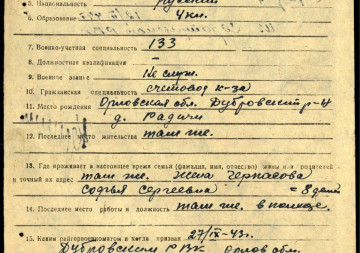 5. Национальность русский
6. Образование 4 кл.
7. Военно-учетная специальность 133
8. Должностная квалификация –
9. Военное звание Не служ.
10. Гражданская специальность счетовод к-за
11. Место рождения Орловская обл. Дубровский р-н
д. Радичи
12. Последнее место жительства там же.
13. Где проживает в настоящее время семья (фамилия, имя, отчество) жены или родителей
и точный их адрес там же. Жена
Софья Сергеевна = 8 детей
14. Последнее место работы и должность там же. в колхозе.
15. Каким райгорвоенкоматом и числа призван 27/IX-43г.
Дубровским РВК Орлов. обл.